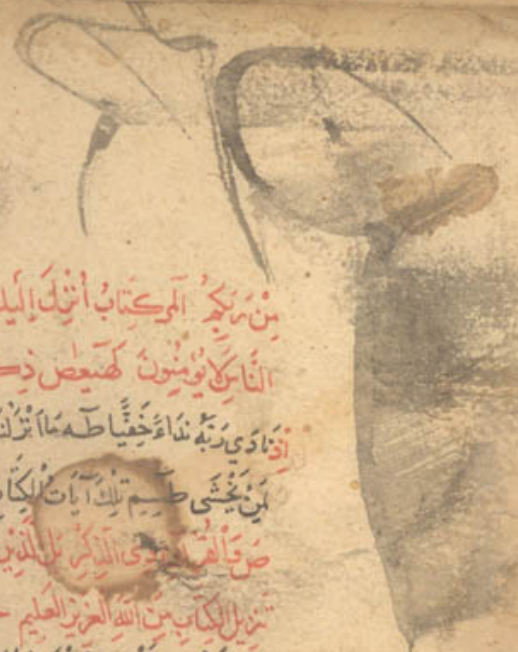 مِن رَبِّكُمْ المر كِتَابٌ أُنْزِلَ إِلَيْكَ
النَّاسِ لَا يُؤْمِنُونَ كهيعص ذِكْ
إِذْ نَادَى رَبَّهُ نِدَاءً خَفِيًّا طه مَا أَنْزَلْنَا
لِمَنْ يَخْشَى طسم تِلْكَ آيَاتُ الْكِتَابِ
ص وَالْقُرْآنِ ذِي الذِّكْرِ بَلِ الَّذِينَ
تَنْزِيلُ الْكِتَابِ مِنَ اللَّهِ الْعَزِيزِ الْعَلِيمِ